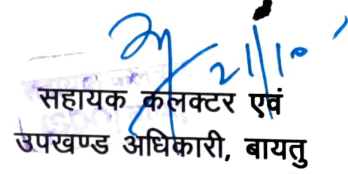 21/10
सहायक कलक्टर एवं
उपखण्ड अधिकारी, बायतु